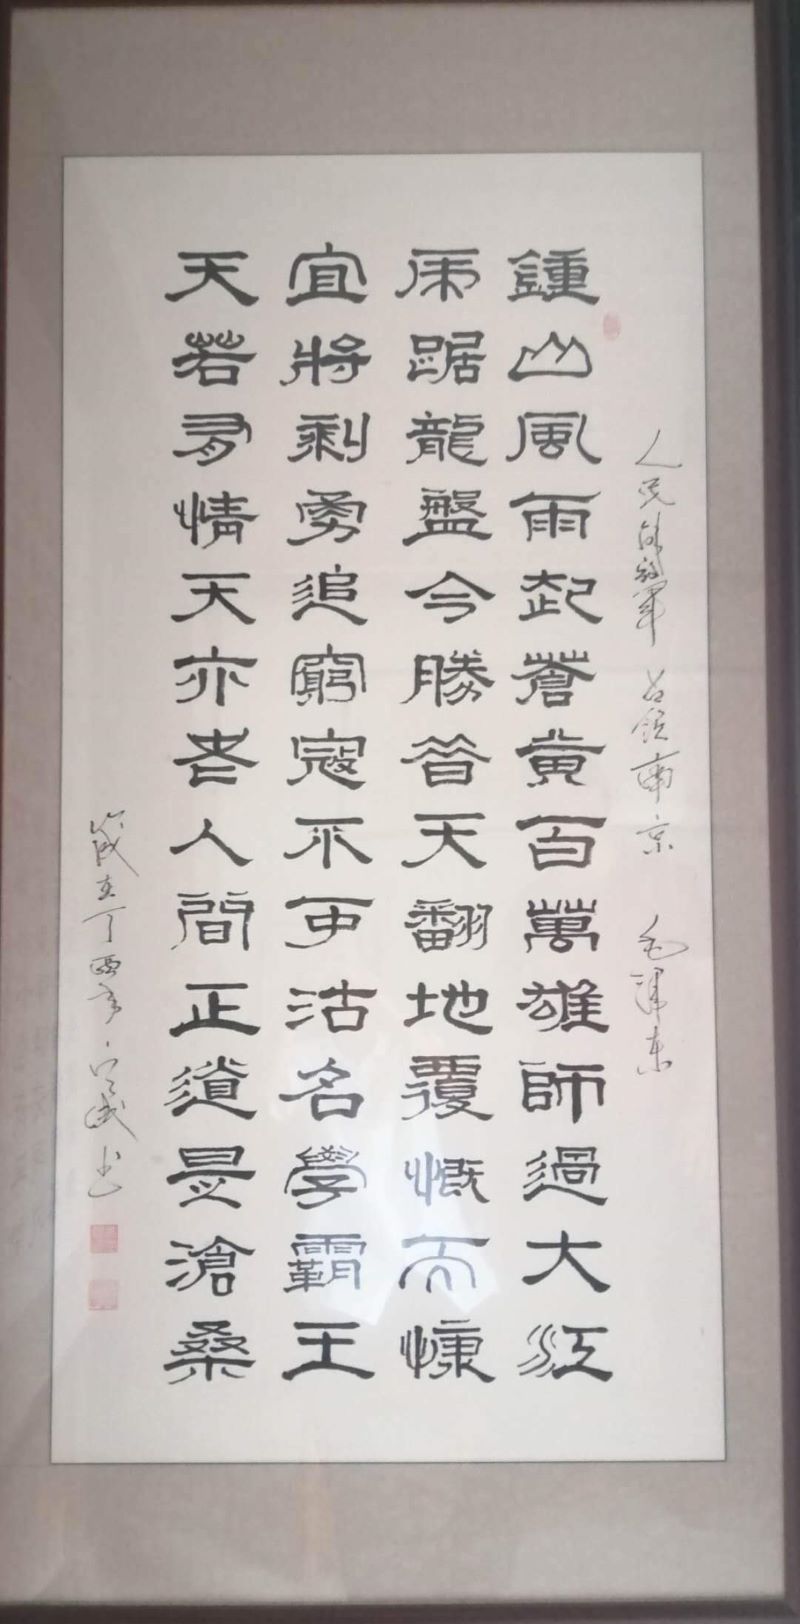 人民解放軍 占領南京 毛澤東
鍾山風雨起蒼黄百萬雄師過大江
虎踞龍盤今勝昔天翻地覆慨而慷
宜將剩勇追窮寇不可沽名學霸王
天若有情天亦老人間正道是滄桑
歲在丁酉年